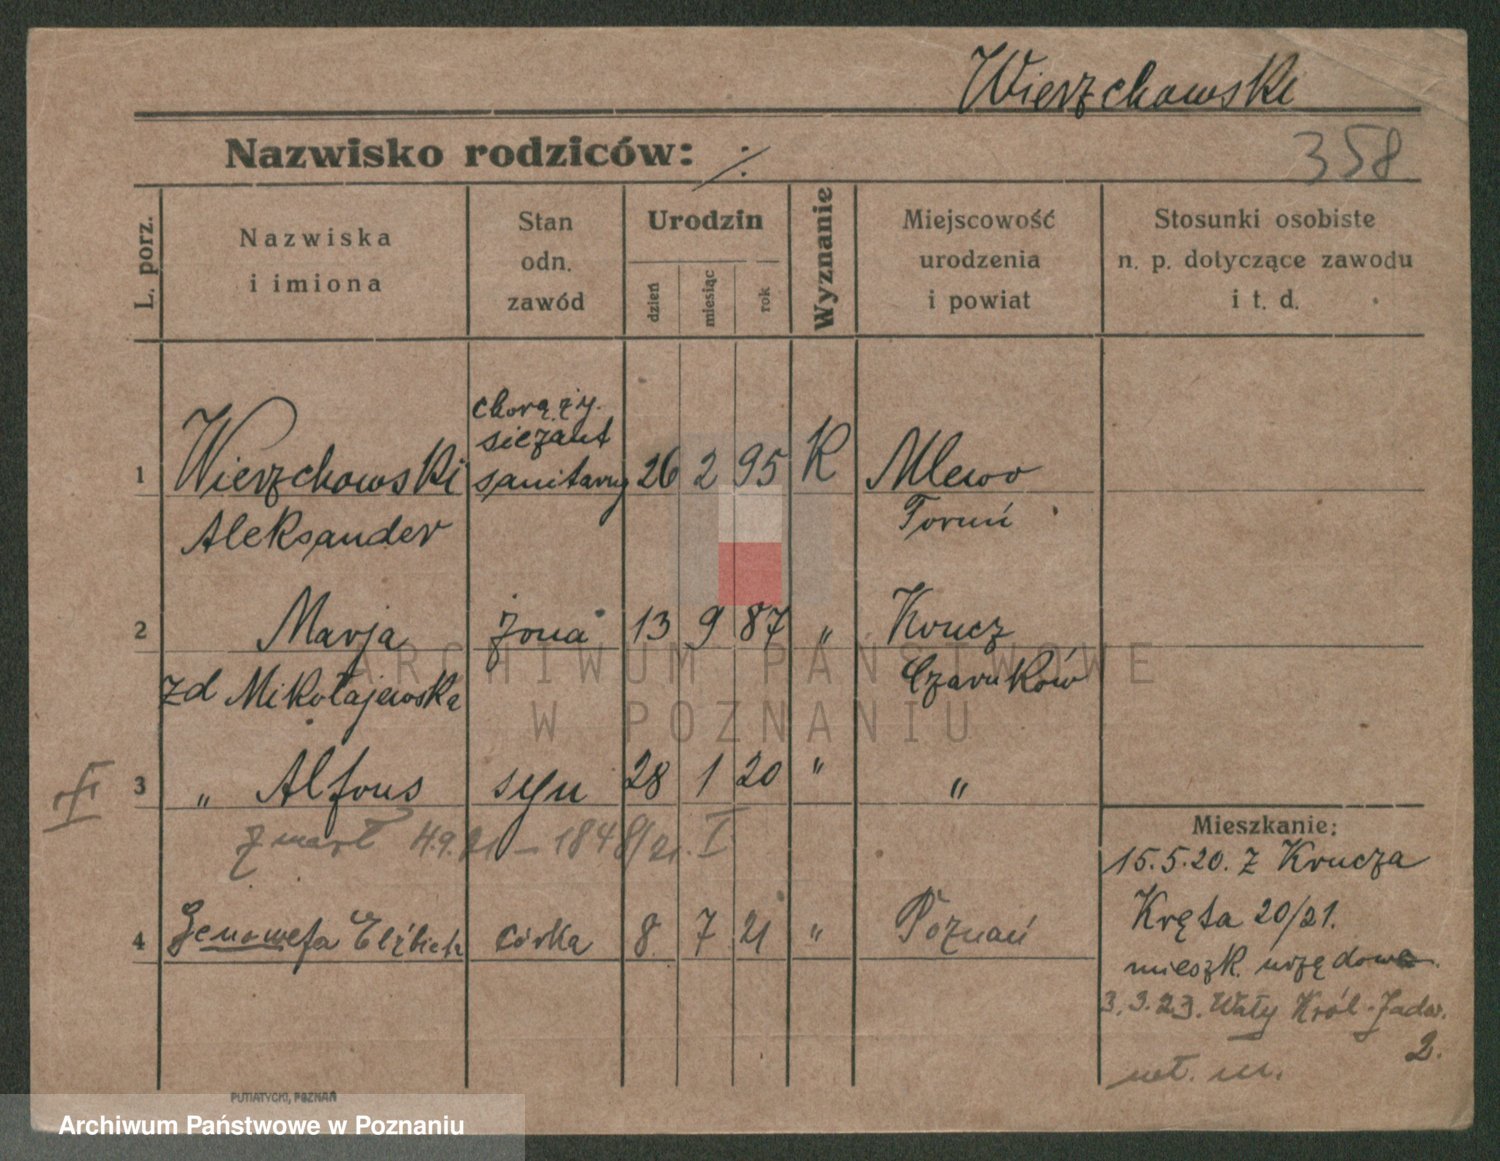 Wierzchowski
358
Nazwisko rodziców: ·/·
L. porz.
Nazwiska
i imiona
Stan
odn.
zawód
Urodzin
dzień
miesiąc
rok
Wyznanie
Miejscowość
urodzenia
i powiat
Stosunki osobiste
n. p. dotyczące zawodu
i t. d.
chorąży.
sierżant
1 Wierzchowski sanitarny 26 2 95 K Mlewo
Aleksander Toruń
2 Marja żona 13 9 87 „ Krucz
zd Mikołajewska Czarnków
3 „ Alfons syn 28 1 20 „ „
zmarł 4.9.21 – 1848/21. I
4 Genowefa Elżbieta córka 8 7 21 „ Poznań
Mieszkanie:
15.5.20. z Krucza
Kręta 20/21.
mieszk. urzędowe.
3.3.23. Wały Król-Jadw.
2.
PUTIATYCKI, POZNAŃ
ARCHIWUM PAŃSTWOWE
W POZNANIU
Archiwum Państwowe w Poznaniu